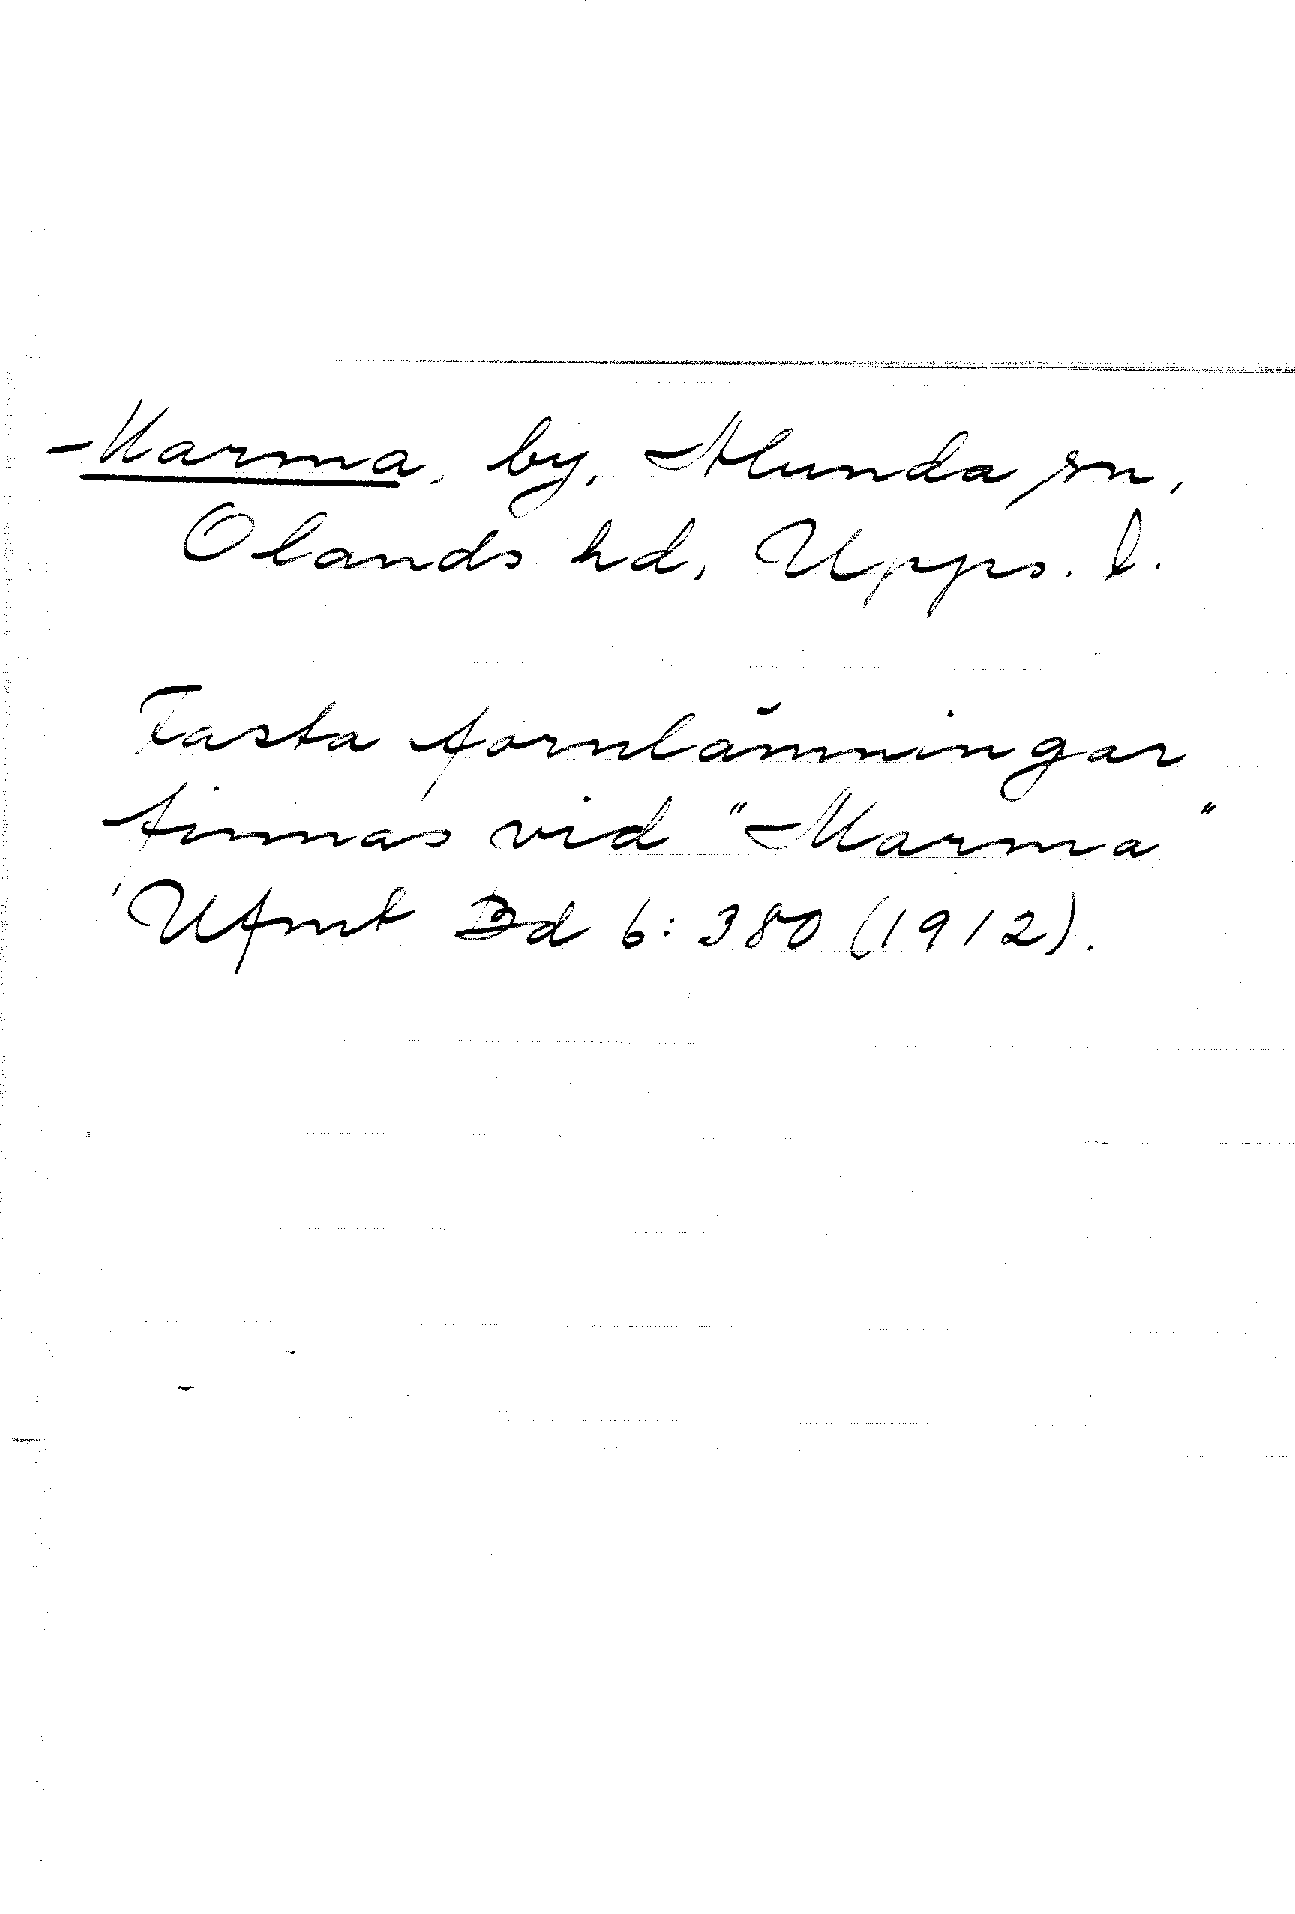 Marma, by, Alunda sn,
Olands hd, Upps. l.
Fasta fornlämningar
finnas vid "Marma"
Ufmt Bd 6: 380 (1912).